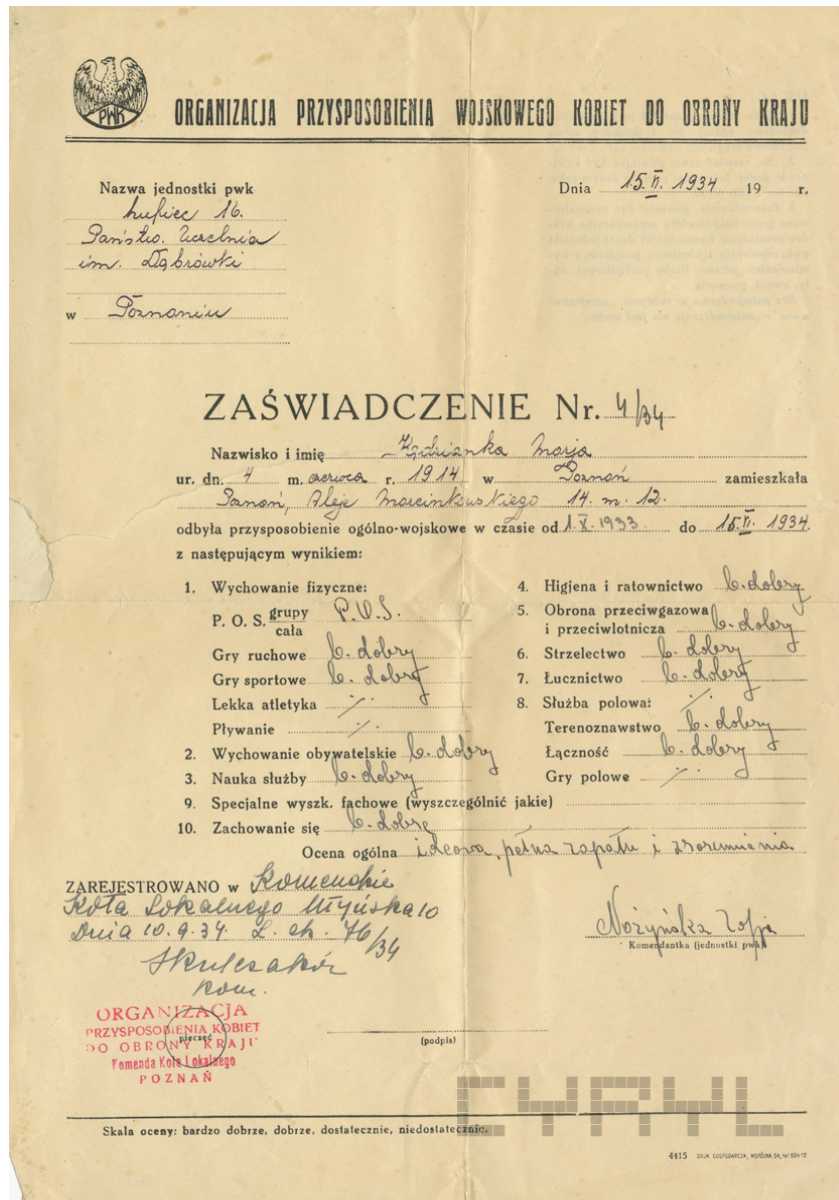 PWK
ORGANIZACJA PRZYSPOSOBIENIA WOJSKOWEGO KOBIET DO OBRONY KRAJU
Nazwa jednostki pwk
hufiec 16.
Państw. Uczelnia
im. Dąbrówki
w Poznaniu
Dnia 15.VI. 1934 19 r.
ZAŚWIADCZENIE Nr. 4/34
Nazwisko i imię Marja
ur. dn. 4 m. czerwca r. 1914 w Poznań zamieszkała
Poznań, Aleje Marcinkowskiego 14. m. 12.
odbyła przysposobienie ogólno-wojskowe w czasie od 1.X.1933. do 15.VI. 1934.
z następującym wynikiem:
1. Wychowanie fizyczne:
P. O. S. grupy cała
Gry ruchowe b. dobry
Gry sportowe b. dobry
Lekka atletyka ·/·
Pływanie ·/·
2. Wychowanie obywatelskie b. dobry
3. Nauka służby b. dobry
4. Higjena i ratownictwo b. dobry
5. Obrona przeciwgazowa
i przeciwlotnicza b. dobry
6. Strzelectwo b. dobry
7. Łucznictwo b. dobry
8. Służba polowa: ·/·
Terenoznawstwo b. dobry
Łączność b. dobry
Gry polowe ·/·
9. Specjalne wyszk. fachowe (wyszczególnić jakie)
10. Zachowanie się b. dobre
Ocena ogólna ideowa, pełna zapału i zrozumienia
ZAREJESTROWANO w Komendzie
Koła Lokalnego Młyńska 10
Dnia 10.9.34. L. ch. 76/34
kom.
Nożyńska Zofja
Komendantka (jednostki pwk)
ORGANIZACJA
PRZYSPOSOBIENIA KOBIET
DO OBRONY KRAJU
pieczęć
Komenda Koła Lokalnego
POZNAŃ
(podpis)
CYRYL
Skala oceny: bardzo dobrze, dobrze, dostatecznie, niedostatecznie.
4415 DRUK GOSPODARCZA, WSPÓLNA 54,